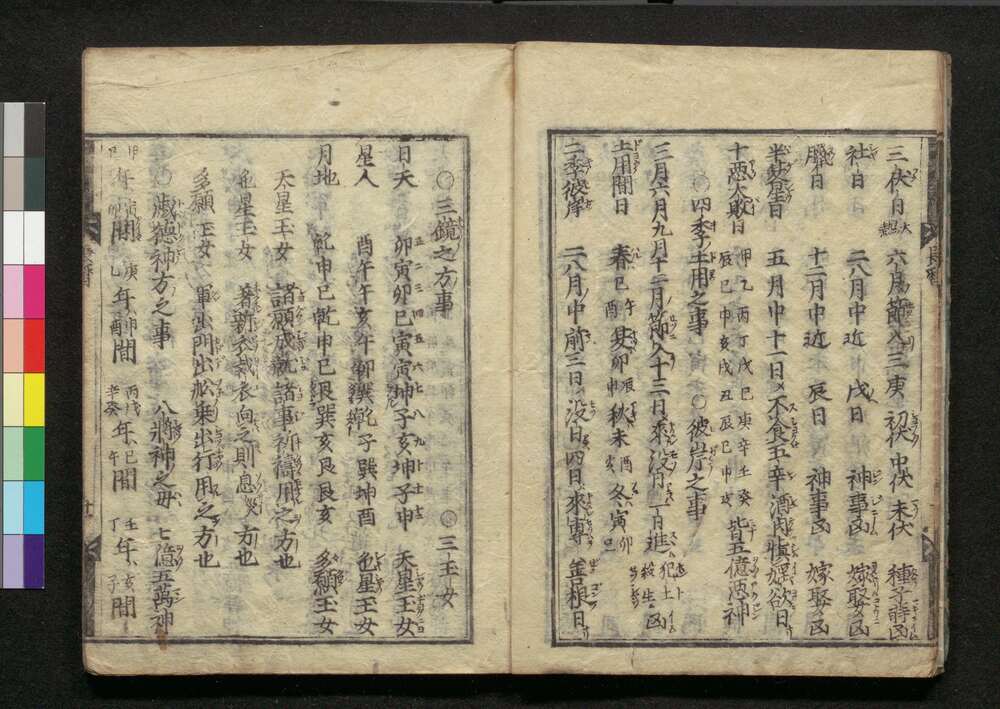 三伏日 大凶 六月節入三庚 初伏中伏末伏 種子蒔凶
社日 二八月中近 戊日 神事凶 嫁娶凶
臘日 十二月中近 辰日 神事凶 嫁娶凶
半夏生日 五月中十一日 不食五辛酒肉慎婬欲日
十悪大敗日 甲乙丙丁戊己庚辛壬癸 辰巳申亥戌丑辰巳申亥 皆五億悪神
○四季土用之事 ○彼岸之事
三月六月九月十二月節入十三日 犯土 殺生凶
土用間日 春巳午酉 夏卯辰申 秋未酉亥 冬寅卯巳
二季彼岸 二八月中前三日 没日四日來
○三鏡之方事 ○三玉女
正二三四五六七八九十十一十二
日天 卯寅卯巳寅寅坤子亥坤子申 天星玉女
星人 酉午午亥午卯巽乾子巽坤酉 色星玉女
月地 乾申巳乾申巳艮巽亥艮艮亥 多願玉女
天星玉女 諸願成就諸事祈禱用之方也
色星玉女 著新衣裁衣向之則息災方也
多願玉女 軍出門出舩乗出行用之方也
○歳德神方之事 八將神之母 七億五萬神
甲己年寅卯間 乙庚年申酉間 丙戊辛癸年巳午間 丁壬年亥子間